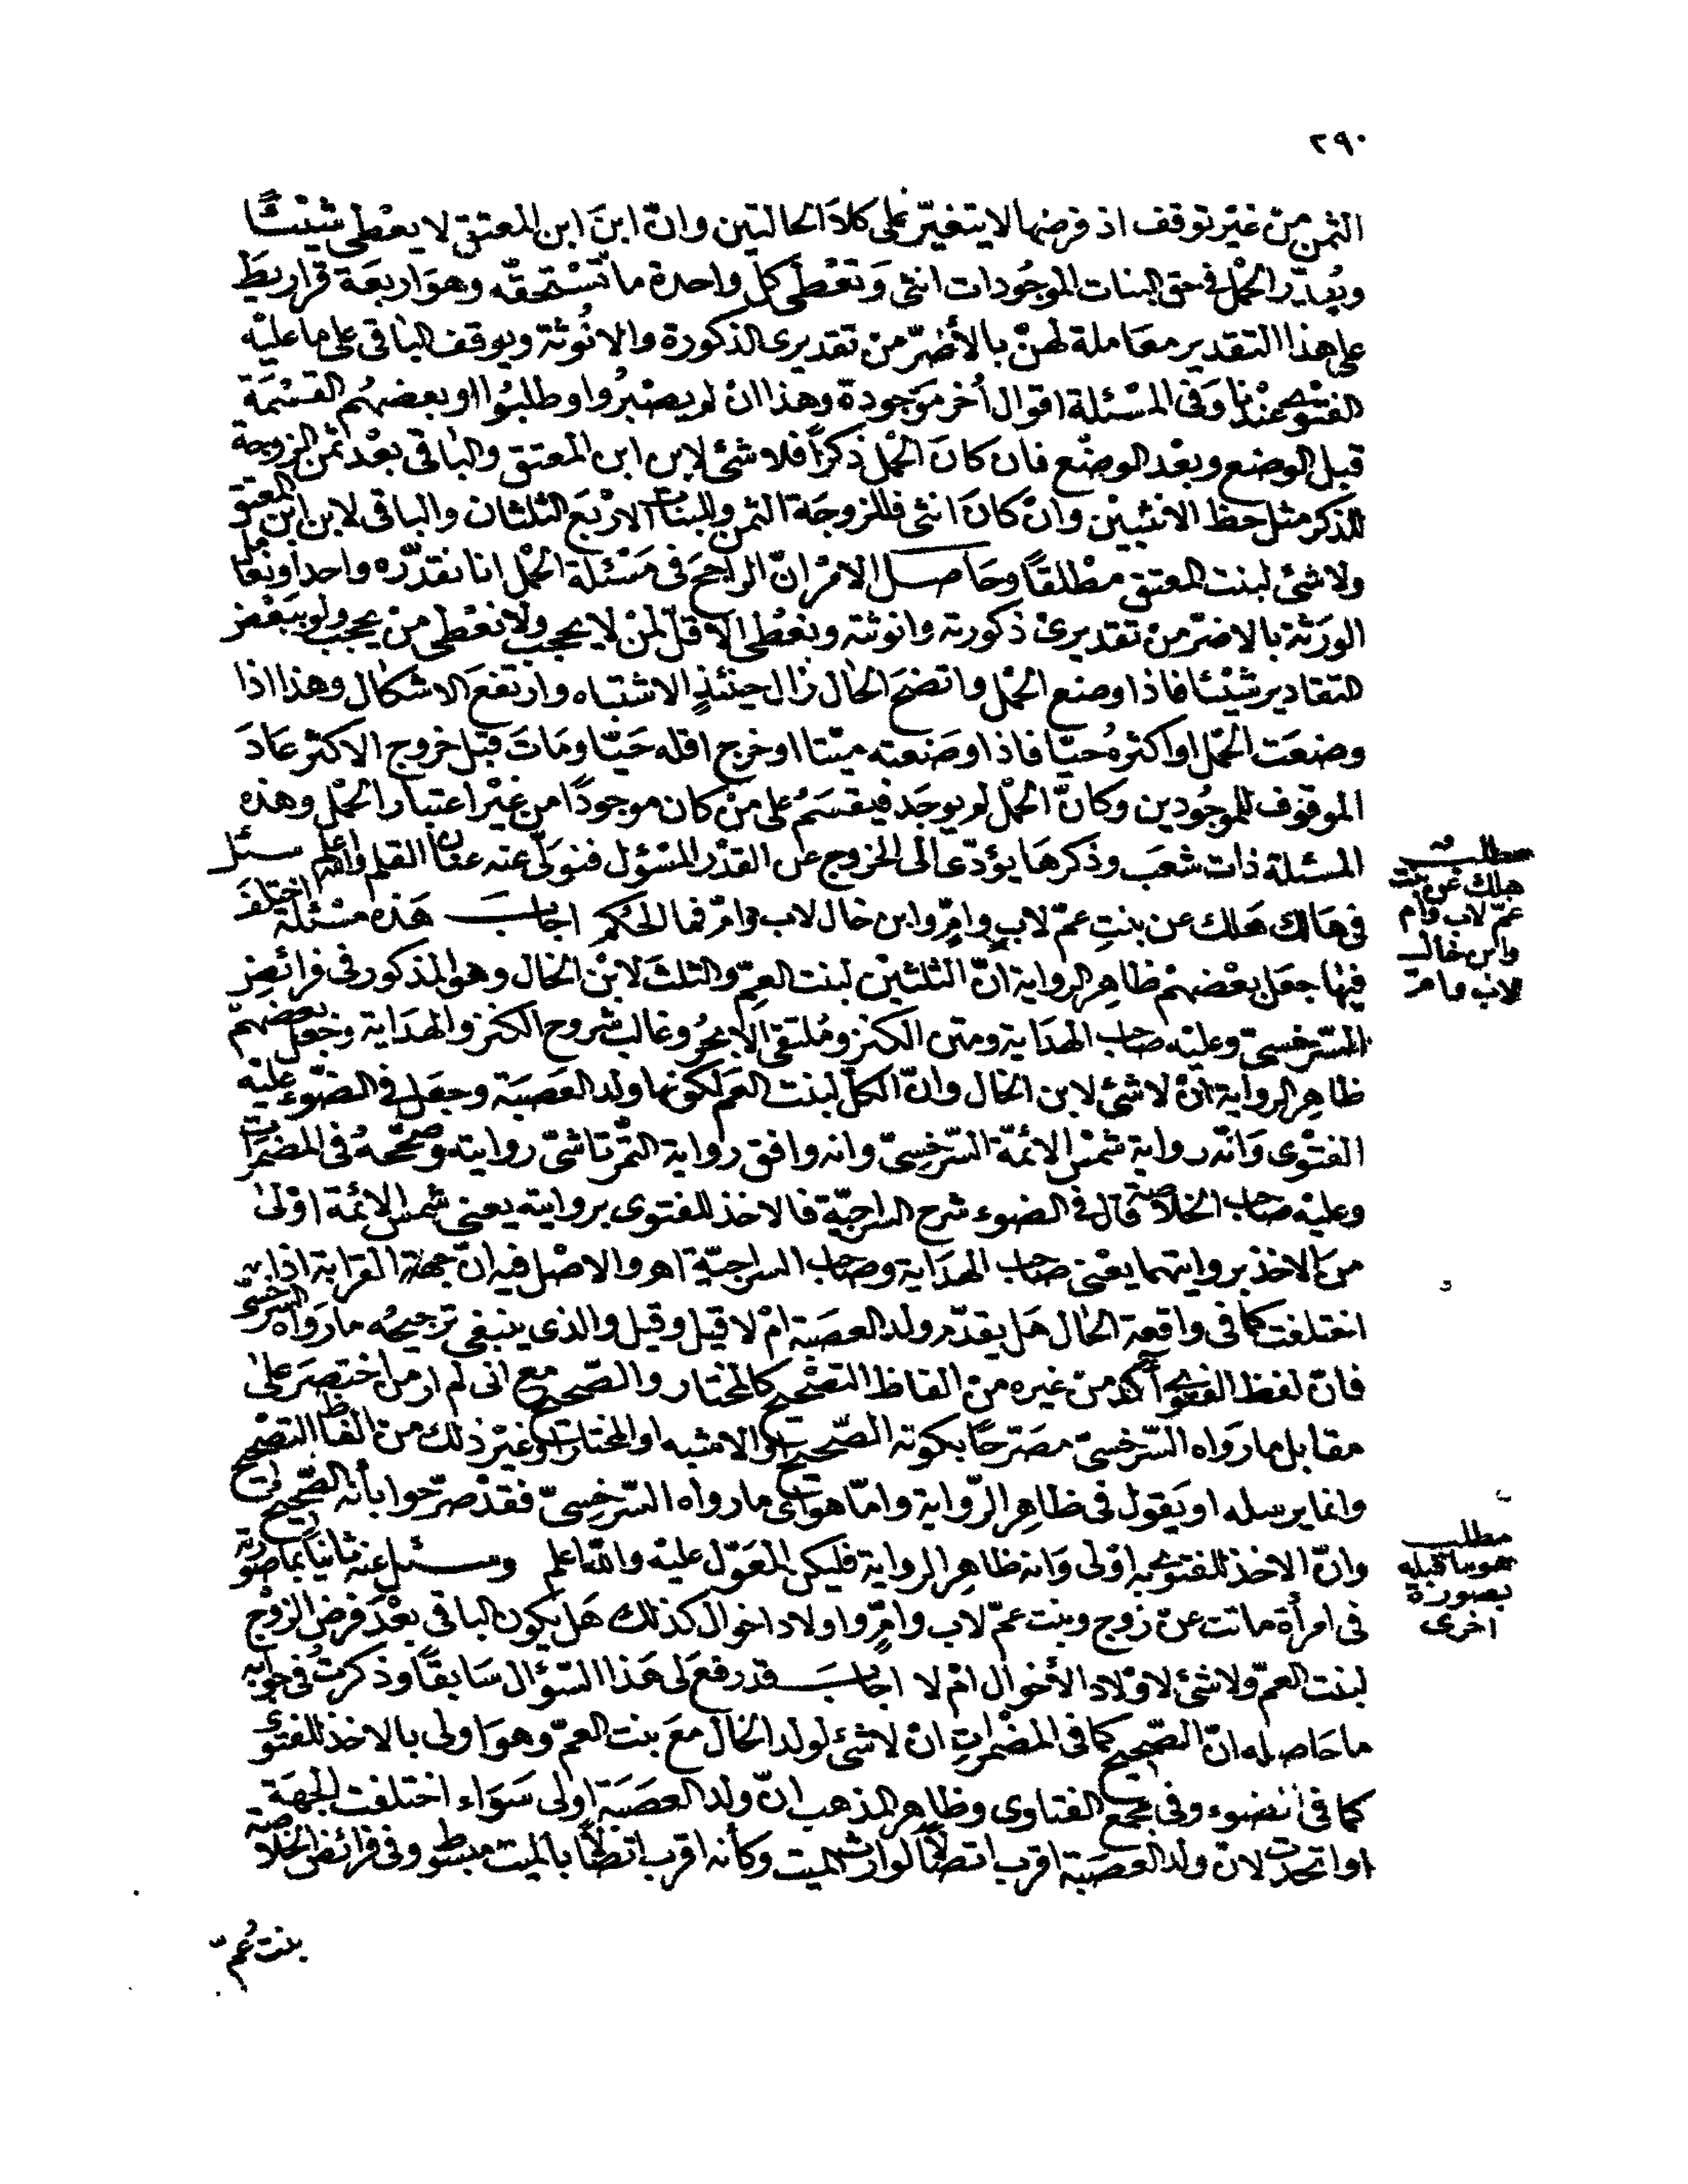 ٢٩٠
الثمن من غير توقف اذ فرضها لا يتغير على كلا الحالتين وانّ ابن ابن المعتق لا يعطى شيئًا
ويُقدّر الحمل فى حق البنات الموجودات انثى وتعطى كل واحدة ما تستحقه وهو اربعة قراريط
على هذا التقدير معاملة لهنّ بالأضرّ من تقديرى الذكورة والانوثة ويوقف الباقى على ما عليه
الفتوى عندنا وفى المسئلة اقوال أخر موجودة وهذا ان لم يصبروا وطلبوا او بعضهم القسمة
قبل الوضع وبعد الوضع فان كان الحمل ذكرًا فلا شئ لابن ابن المعتق والباقى بعد ثمن الزوجة
للذكر مثل حظ الانثيين وان كان انثى فللزوجة الثمن وللبنات الاربع الثلثان والباقى لابن ابن المعتق
ولا شئ لبنت المعتق مطلقًا وحاصل الامر انّ الراجح فى مسئلة الحمل انا نقدّره واحدا ونعامل
الورثة بالاضرّ من تقديرى ذكورته وانوثته ونعطى الاقلّ لمن لا يحجب ولا نعطى من يحجب ولو ببعض
التقادير شيئا فاذا وضع الحمل واتضح الحال زال حينئذٍ الاشتباه وارتفع الاشكال وهذا اذا
وضعت الحمل او اكثره حيّا فاذا وضعته ميتا او خرج اقله حيّا ومات قبل خروج الاكثر عاد
الموقوف للموجودين وكانّ الحمل لم يوجد فيقسم على من كان موجودًا من غير اعتبار الحمل وهذه
المسئلة ذات شعب وذكرها يؤدّى الى الخروج عن القدر المسؤل فنولّى عنه عنان القلم والله اعلم سئل
فى هالك هلك عن بنت عمّ لاب وامٍّ وابن خال لاب وامّ فما الحكم اجاب هذه مسئلة اختلف
فيها جعل بعضهم ظاهر الرواية انّ الثلثين لبنت العم والثلث لابن الخال وهو المذكور فى فرائض
السرخسىّ وعليه صاحب الهداية ومتن الكنز وملتقى الابحر وغالب شروح الكنز والهداية وجعل بعضهم
ظاهر الرواية ان لا شئ لابن الخال وانّ الكلّ لبنت العم لكونها ولد العصبة وجعل فى الضوء عليه
الفتوى وانه رواية شمس الائمّة السّرخسىّ وانه وافق رواية التمرتاشىّ روايته وصححه فى المضمرات
وعليه صاحب الخلاصة قال فى الضوء شرح السراجيّة فالاخذ للفتوى بروايته يعنى شمس الائمة اولى
من الاخذ بروايتهما يعنى صاحب الهداية وصاحب السراجيّة اهـ والاصل فيه انّ جهة القرابة اذا
اختلفت كما فى واقعة الحال هل يقدّم ولد العصبة ام لا قيل وقيل والذى ينبغى ترجيحه ما رواه السرخسى
فانّ لفظ الفتوى آكد من غيره من الفاظ التصحيح كالمختار والصّحيح مع انى لم ار من اختصر على
مقابل ما رواه السّرخسىّ مصرّحًا بكونه الصّحيح او الاشبه او المختار او غير ذلك من الفاظ التصحيح
وانما يرسله او يقول فى ظاهر الرّواية وامّا هو اى ما رواه السّرخسىّ فقد صرّحوا بأنه الصّحيح
وانّ الاخذ للفتوى به اولى وانه ظاهر الرواية فليكن المعوّل عليه والله اعلم وسئل عنه ثانيا بما صورته
فى امرأة ماتت عن زوج وبنت عمّ لاب وامٍّ واولاد اخوال كذلك هل يكون الباقى بعد فرض الزوج
لبنت العمّ ولا شئ لاولاد الأخوال ام لا اجاب قد رفع لى هذا السّؤال سابقًا وذكرت فى جوابه
ما حاصله انّ الصّحيح كما فى المضمرات ان لا شئ لولد الخال مع بنت العمّ وهو اولى بالاخذ للفتوى
كما فى الضوء وفى مجمع الفتاوى وظاهر المذهب انّ ولد العصبة اولى سواء اختلفت الجهة
او اتحدت لانّ ولد العصبة اقرب اتصالًا لوارث الميت وكأنه اقرب اتصالًا بالميت مبسوط وفى فرائض الخلاصة
بنت عمّ
مطلب
هلك عن بنت
عمّ لاب وام
وابن خال
لاب وامّ
مطلب
هو ما قبله
بصورة
اخرى